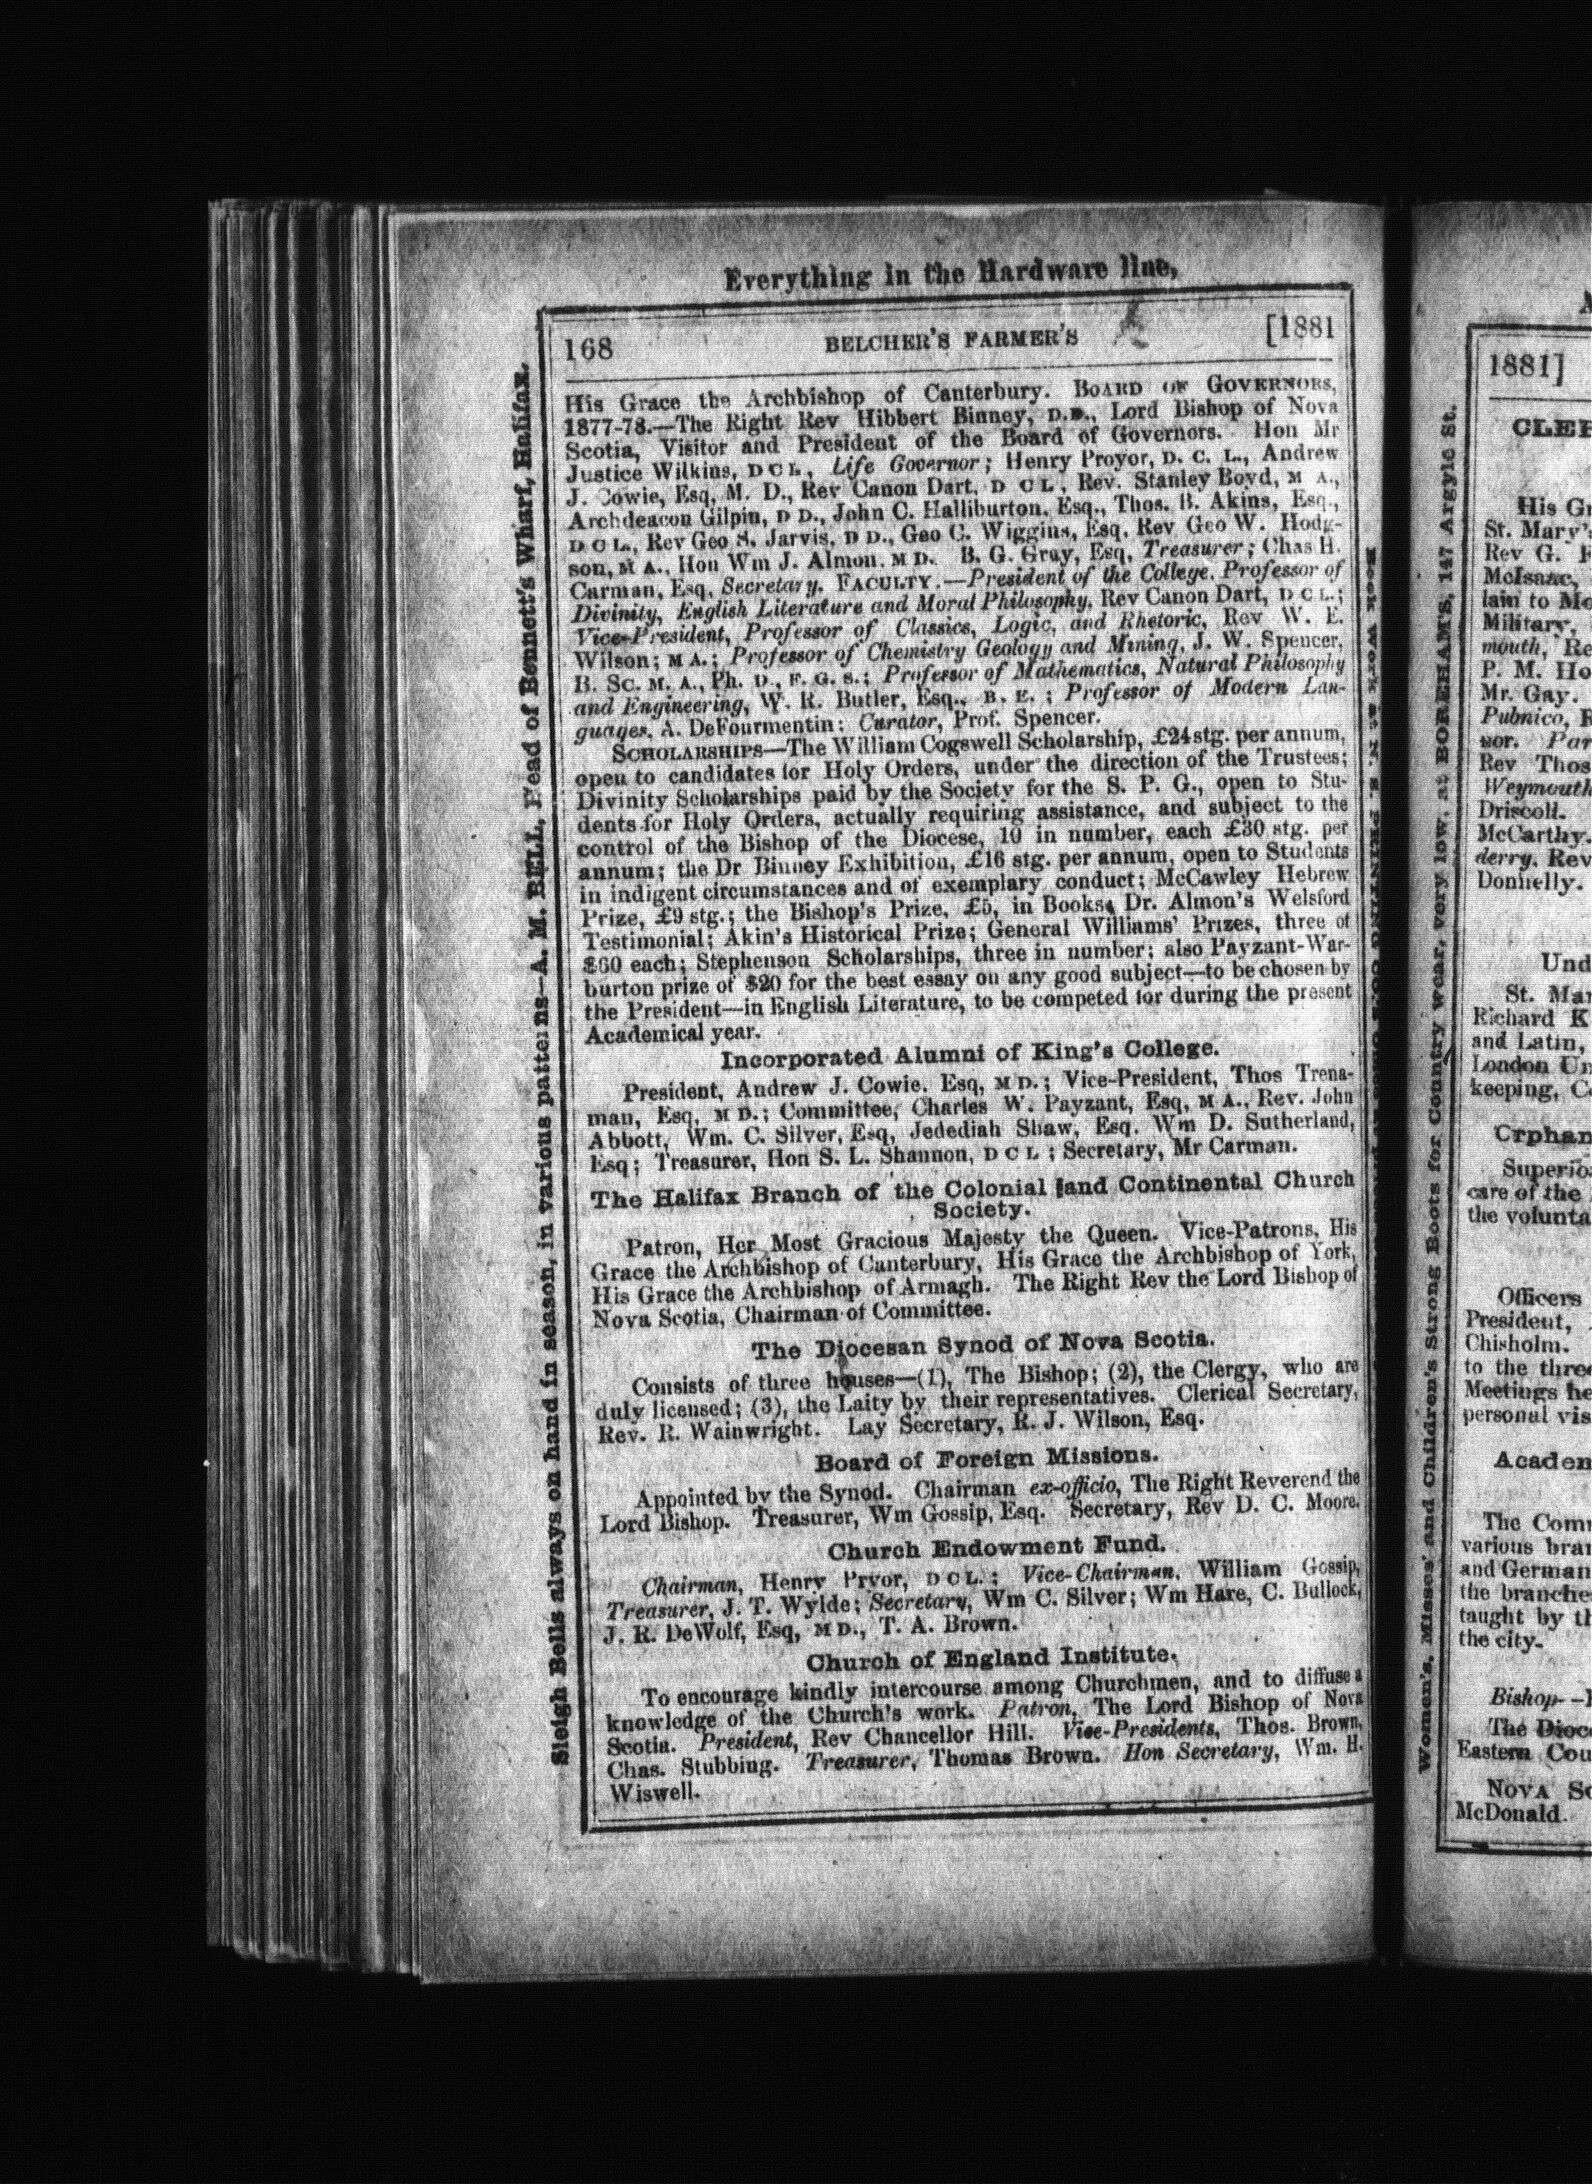 Everything in the Hardware line,
168 BELCHER'S FARMER'S [1881
His Grace the Archbishop of Canterbury. BOARD OF GOVERNORS,
1877-78.—The Right Rev Hibbert Binney, D.D., Lord Bishop of Nova
Scotia, Visitor and President of the Board of Governors. Hon Mr
Justice Wilkins, D C L, Life Governor; Henry Proyor, D. C. L., Andrew
J. Cowie, Esq, M. D., Rev Canon Dart, D C L, Rev. Stanley Boyd, M A.,
Archdeacon Gilpin, D D., John C. Halliburton, Esq., Thos. B. Akins, Esq.,
D C L., Rev Geo S. Jarvis, D D., Geo C. Wiggins, Esq, Rev Geo W. Hodg-
son, M A., Hon Wm J. Almon, M D. B. G. Gray, Esq, Treasurer; Chas H.
Carman, Esq, Secretary. FACULTY.—President of the College, Professor of
Divinity, English Literature and Moral Philosophy, Rev Canon Dart, D C L.;
Vice-President, Professor of Classics, Logic, and Rhetoric, Rev W. E.
Wilson; M A.; Professor of Chemistry Geology and Mining, J. W. Spencer,
B. Sc. M. A., Ph. D., F. G. S.; Professor of Mathematics, Natural Philosophy
and Engineering, W. R. Butler, Esq., B. E.; Professor of Modern Lan-
guages, A. DeFourmentin; Curator, Prof. Spencer.
SCHOLARSHIPS—The William Cogswell Scholarship, £24 stg. per annum,
open to candidates for Holy Orders, under the direction of the Trustees;
Divinity Scholarships paid by the Society for the S. P. G., open to Stu-
dents for Holy Orders, actually requiring assistance, and subject to the
control of the Bishop of the Diocese, 10 in number, each £30 stg. per
annum; the Dr Binney Exhibition, £16 stg. per annum, open to Students
in indigent circumstances and of exemplary conduct; McCawley Hebrew
Prize, £9 stg.; the Bishop's Prize, £5, in Books; Dr. Almon's Welsford
Testimonial; Akin's Historical Prize; General Williams' Prizes, three of
$60 each; Stephenson Scholarships, three in number; also Payzant-War-
burton prize of $20 for the best essay on any good subject—to be chosen by
the President—in English Literature, to be competed for during the present
Academical year.
Incorporated Alumni of King's College.
President, Andrew J. Cowie, Esq, M D.; Vice-President, Thos Trena-
man, Esq, M D.; Committee, Charles W. Payzant, Esq, M A., Rev. John
Abbott, Wm. C. Silver, Esq, Jedediah Shaw, Esq. Wm D. Sutherland,
Esq; Treasurer, Hon S. L. Shannon, D C L; Secretary, Mr Carman.
The Halifax Branch of the Colonial and Continental Church
Society.
Patron, Her Most Gracious Majesty the Queen. Vice-Patrons, His
Grace the Archbishop of Canterbury, His Grace the Archbishop of York,
His Grace the Archbishop of Armagh. The Right Rev the Lord Bishop of
Nova Scotia, Chairman of Committee.
The Diocesan Synod of Nova Scotia.
Consists of three houses—(1), The Bishop; (2), the Clergy, who are
duly licensed; (3), the Laity by their representatives. Clerical Secretary,
Rev. R. Wainwright. Lay Secretary, R. J. Wilson, Esq.
Board of Foreign Missions.
Appointed by the Synod. Chairman ex-officio, The Right Reverend the
Lord Bishop. Treasurer, Wm Gossip, Esq. Secretary, Rev D. C. Moore.
Church Endowment Fund.
Chairman, Henry Pryor, D C L.; Vice-Chairman, William Gossip,
Treasurer, J. T. Wylde; Secretary, Wm C. Silver; Wm Hare, C. Bullock,
J. R. DeWolf, Esq, M D., T. A. Brown.
Church of England Institute.
To encourage kindly intercourse among Churchmen, and to diffuse a
knowledge of the Church's work. Patron, The Lord Bishop of Nova
Scotia. President, Rev Chancellor Hill. Vice-Presidents, Thos. Brown,
Chas. Stubbing. Treasurer, Thomas Brown. Hon Secretary, Wm. H.
Wiswell.
Sleigh Bells always on hand in season, in various patterns—A. M. BELL, Head of Bennett's Wharf, Halifax.
Women's, Misses' and Children's Strong Boots for Country wear, very low, at BOREHAM'S, 147 Argyle St.
1881]
His
St. Mary's
Rev G.
McIsaac,
lain to
Military,
mouth,
P. M.
Mr. Gay.
Pubnico,
Rev Thos
Weymouth
Driscoll.
McCarthy.
derry, Rev
Donnelly.
St.
Richard
and Latin,
London
keeping,
care of the
Officers
President,
Chisholm.
to the three
Meetings
personal
The
various
and German
the
taught by
the city.
Bishop-
The
Eastern
NOVA
McDonald.